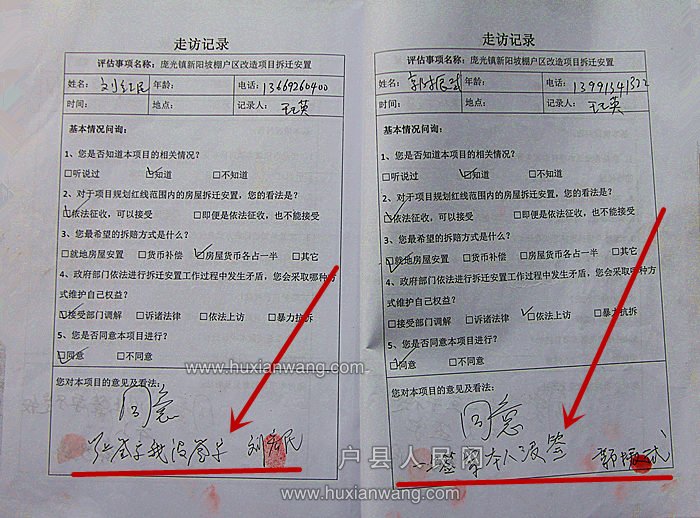 走访记录
评估事项名称：庞光镇新阳坡棚户区改造项目拆迁安置
姓名：刘红民 年龄： 电话：13669260400
时间： 地点： 记录人：王英
基本情况问询：
1、您是否知道本项目的相关情况？
□听说过 □知道
2、对于项目规划红线范围内的房屋拆迁安置，您的看法是？
□依法征收，可以接受 □即便是依法征收，也不能接受
3、您最希望的拆赔方式是什么？
□就地房屋安置 □货币补偿 □房屋货币各占一半 □其它
4、政府部门依法进行拆迁安置工作过程中发生矛盾，您会采取哪种方
式维护自己权益？
□接受部门调解 □诉诸法律 □依法上访 □暴力抗拆
5、您是否同意本项目进行？
□同意 □不同意
您对本项目的意见及看法：
同意
签字我没签字 刘红民
走访记录
评估事项名称：庞光镇新阳坡棚户区改造项目拆迁安置
姓名：郭振武 年龄： 电话：13991341322
时间： 地点： 记录人：王英
基本情况问询：
1、您是否知道本项目的相关情况？
□听说过 □知道
2、对于项目规划红线范围内的房屋拆迁安置，您的看法是？
□依法征收，可以接受 □即便是依法征收，也不能接受
3、您最希望的拆赔方式是什么？
□就地房屋安置 □货币补偿 □房屋货币各占一半 □其它
4、政府部门依法进行拆迁安置工作过程中发生矛盾，您会采取哪种方
式维护自己权益？
□接受部门调解 □诉诸法律 □依法上访 □暴力抗拆
5、您是否同意本项目进行？
□同意 □不同意
您对本项目的意见及看法：
同意
签字本人没签 郭振武
www.huxianwang.com
www.huxianwang.com
户县人民网
www.huxianwang.com